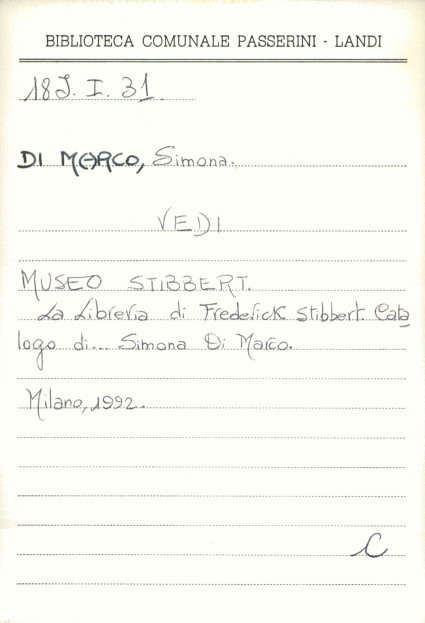 BIBLIOTECA COMUNALE PASSERINI - LANDI
18J. I. 31.
DI MARCO, Simona.
VEDI
MUSEO STIBBERT.
La Libreria di Frederick Stibbert. Cata
logo di... Simona Di Marco.
Milano, 1992.
C